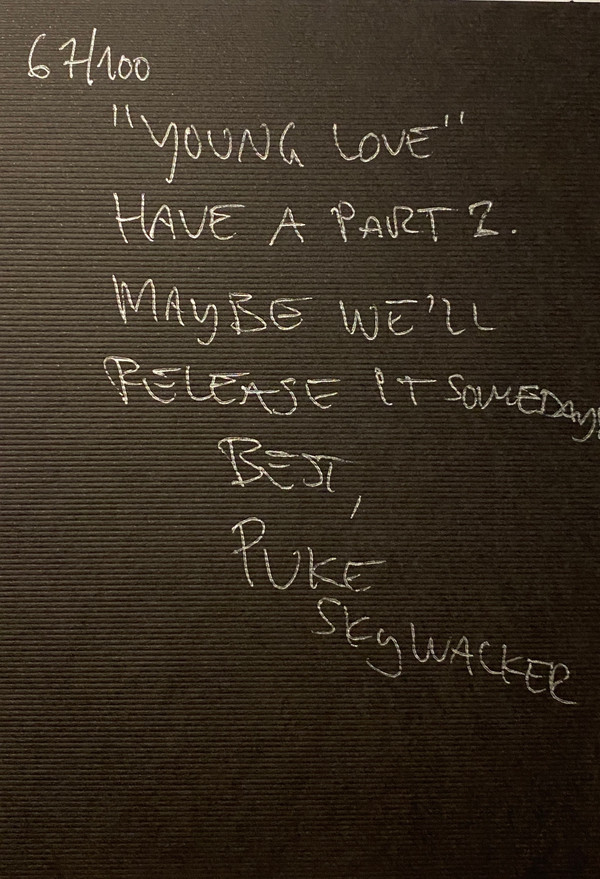 67/100
"YOUNG LOVE"
HAVE A PART 2.
MAYBE WE'LL
RELEASE IT SOMEDAY
BEST,
PUKE
SKYWACKER